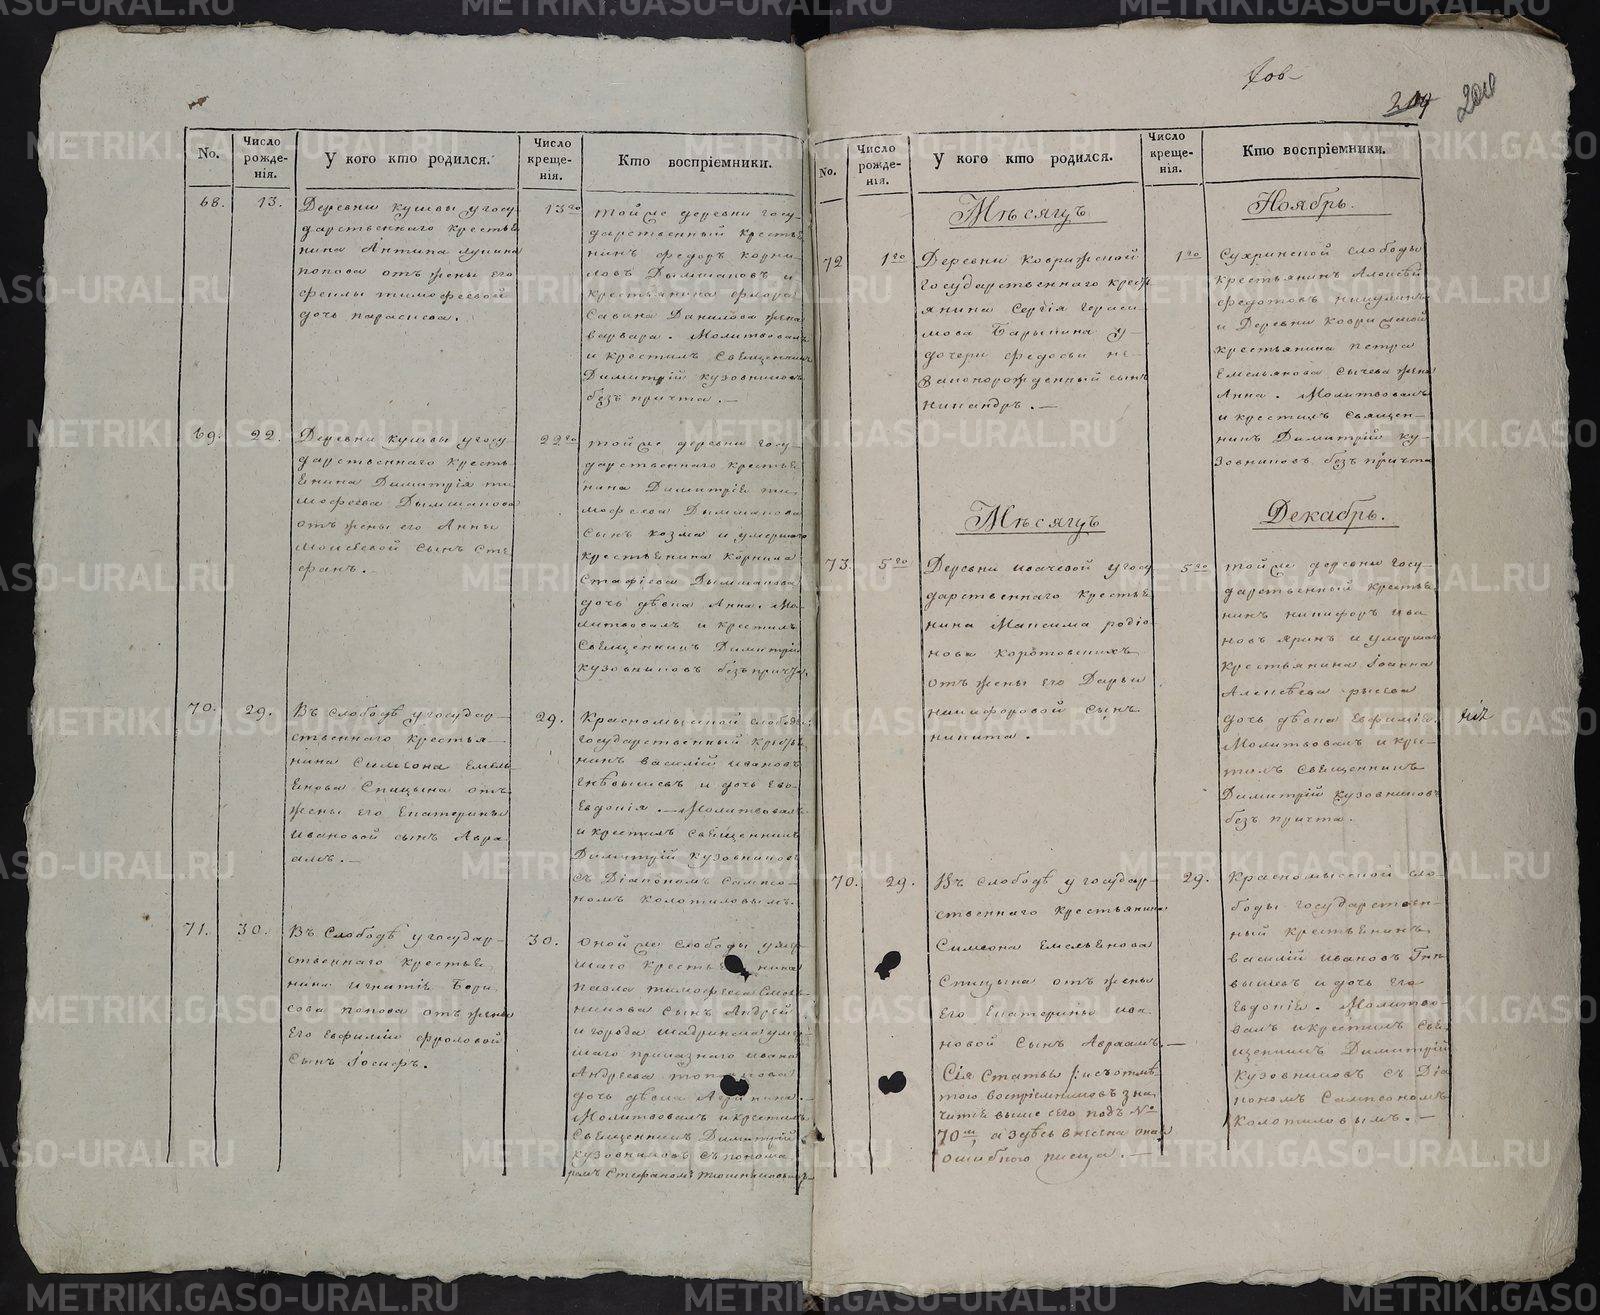 No.
Число рожде- нія.
У кого кто родился.
Число креще- нія.
Кто воспріемники.
68.
13.
Деревни кушвы у госу
дарственнаго кресть
нина Антипа лупина
попова отъ жены его
феклы тимофеевой
дочь параскева.
13го
тойже деревни госу-
дарственный кресть
нинъ федоръ корни-
ловъ Дымшаковъ и
крестьянина флора
Савина Данилова жена
варвара. Молитвовалъ
и крестилъ Священникъ
Димитрій кузовниковъ
безъ причта. —
69.
22.
Деревни кушвы у госу-
дарственнаго кресть-
енина Димитрія ти-
мофеева Дымшакова
отъ жены его Анны
Моисеевой сынъ Сте
фанъ.
22го
тойже деревни госу-
дарственнаго кресть
нина Димитріе ти-
мофеева Дымшакова
сынъ козма и умершаго
крестьенина корнила
Стафеева Дымшакова
дочь дѣвка Анна. Мо-
литвовалъ и крестилъ
Священникъ Димитрій
кузовниковъ безъ причта.
70.
29.
Въ слободѣ у государ-
ственнаго крестья-
нина Симеона Емель-
енова Спицына отъ
жены его Екатерины
ивановой сынъ Авра
амъ. —
29.
Красномыской слободы
государственный кресть
нинъ василій ивановъ
Гнѣвышевъ и дочь его
Евдокія. — Молитвовалъ
и крестилъ священникъ
Димитрій кузовниковъ
съ Діакономъ Сампсо-
номъ колотиловымъ.
71.
30.
Въ Слободѣ у государ-
ственнаго кресть
нина игнатіе Бори
сова попова отъ жены
его Евфиміи фроловой
сынъ Іосифъ.
30.
оной же слободы умер
шаго крестье нина
павла тимофеева
сынъ Андрей
и города шадринска умер
шаго приказнаго ивана
Андреева
дочь дѣвка
Молитвовалъ и крестилъ
Священникъ Димитрій
кузовниковъ съ понома
ремъ Стефаномъ
204
200
No.
Число рожде- нія.
У кого кто родился.
Число креще- нія.
Кто воспріемники.
Мѣсяцъ
Ноябрь.
72
1го
Деревни ковриженой
государственнаго крест
янина Сергія Гераси
мова Барыкина у
дочери федосьи не-
законорожденный сынъ
никандръ. —
1го
Сухринской слободы
крестьянинъ Алексѣй
федотовъ никулинъ
и Деревни ковриженой
крестьянина петра
Емельянова Сычева жена
Анна. Молитвовалъ
и крестилъ Священ-
никъ Димитрій ку-
зовниковъ безъ причта
Мѣсяцъ
Декабрь.
73.
5го
Деревни ивачевой у госу
дарственнаго кресть
нина Максима родіо
нова коротовскихъ
отъ жены его Дарьи
никифоровой сынъ
никита.
5го
тойже деревни госу-
дарственный кресть
нинъ никифоръ ива
новъ Яринъ и умершаго
крестьянина Іоанна
Алексѣева рысева
дочь дѣвка Евфиміе.
Молитвовалъ и кре-
тилъ священникъ
Димитрій кузовниковъ
безъ причта.
70.
29.
Въ слободѣ у государ-
ственнаго крестьянина
Симеона Емельенова
Спицына отъ жены
его Екатерины ива
новой сынъ Авраамъ. —
Сія Статьи
воспріемниковъ зна
чите выше сего подъ №
70ш, а здѣсь внесена она
ошибкою писца. —
29.
Красномысской сло-
боды государствен-
ный крестьенинъ
василій ивановъ Гнѣ
вышевъ и дочь его
Евдокіе. Молитво-
валъ и крестилъ Свя
щенникъ Димитрій
кузовниковъ съ Діа
кономъ Сампсономъ
колотиловымъ. —
METRIKI.GASO-URAL.RU